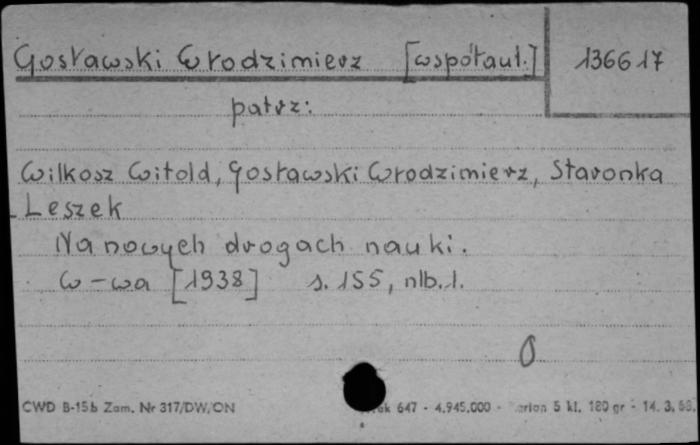 Gosławski Włodzimierz [współaut.] 136617
patrz:
Wilkosz Witold, Gosławski Włodzimierz, Staronka
Leszek
Na nowych drogach nauki.
W-wa [1938] s. 155, nlb. 1.
0
CWD B-15b Zam. Nr 317/DW/ON ruk 647 - 4.945.000 - Karton 5 kl. 180 gr - 14. 3. 58.